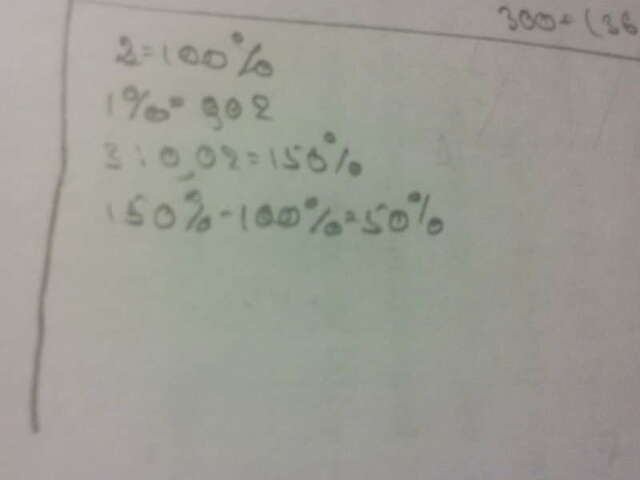 300-(36
2=100%
1%=0,02
3:0,02=150%
150%-100%=50%